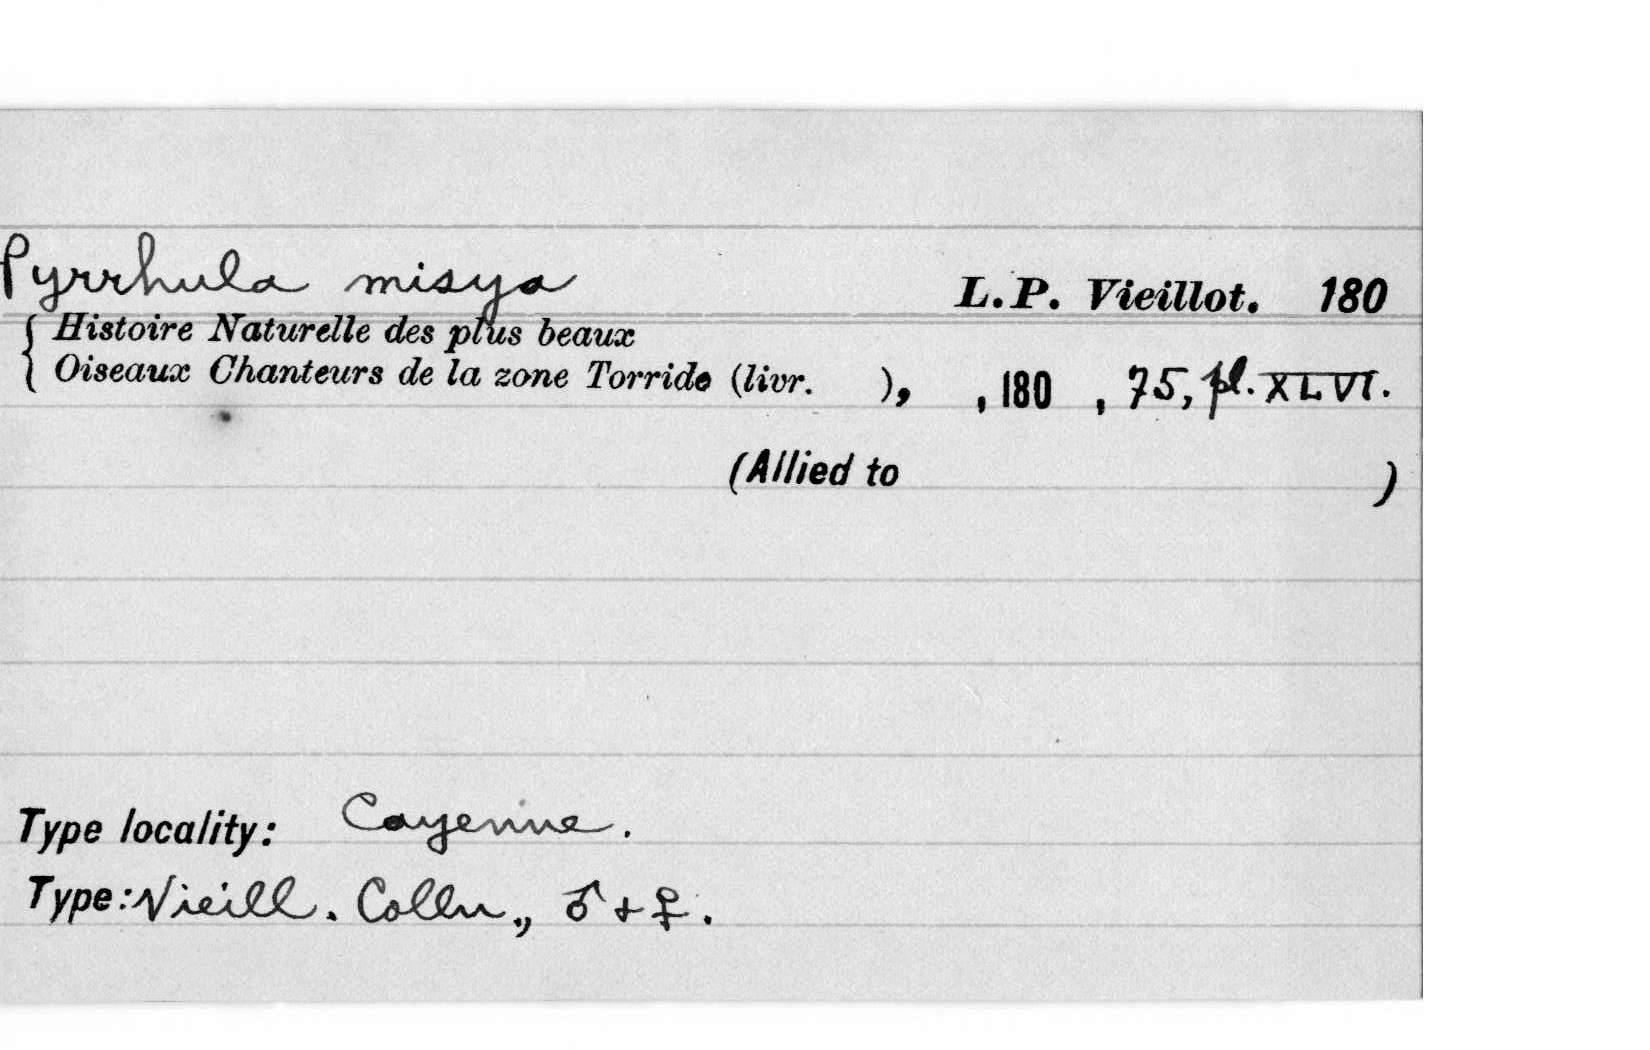 Pyrrhula misya L.P. Vieillot. 180
Histoire Naturelle des plus beaux
Oiseaux Chanteurs de la zone Torride (livr. ), , 180 , 75, pl. XLVI.
(Allied to )
Type locality: Cayenne.
Type: Vieill. Colln., ♂ + ♀.